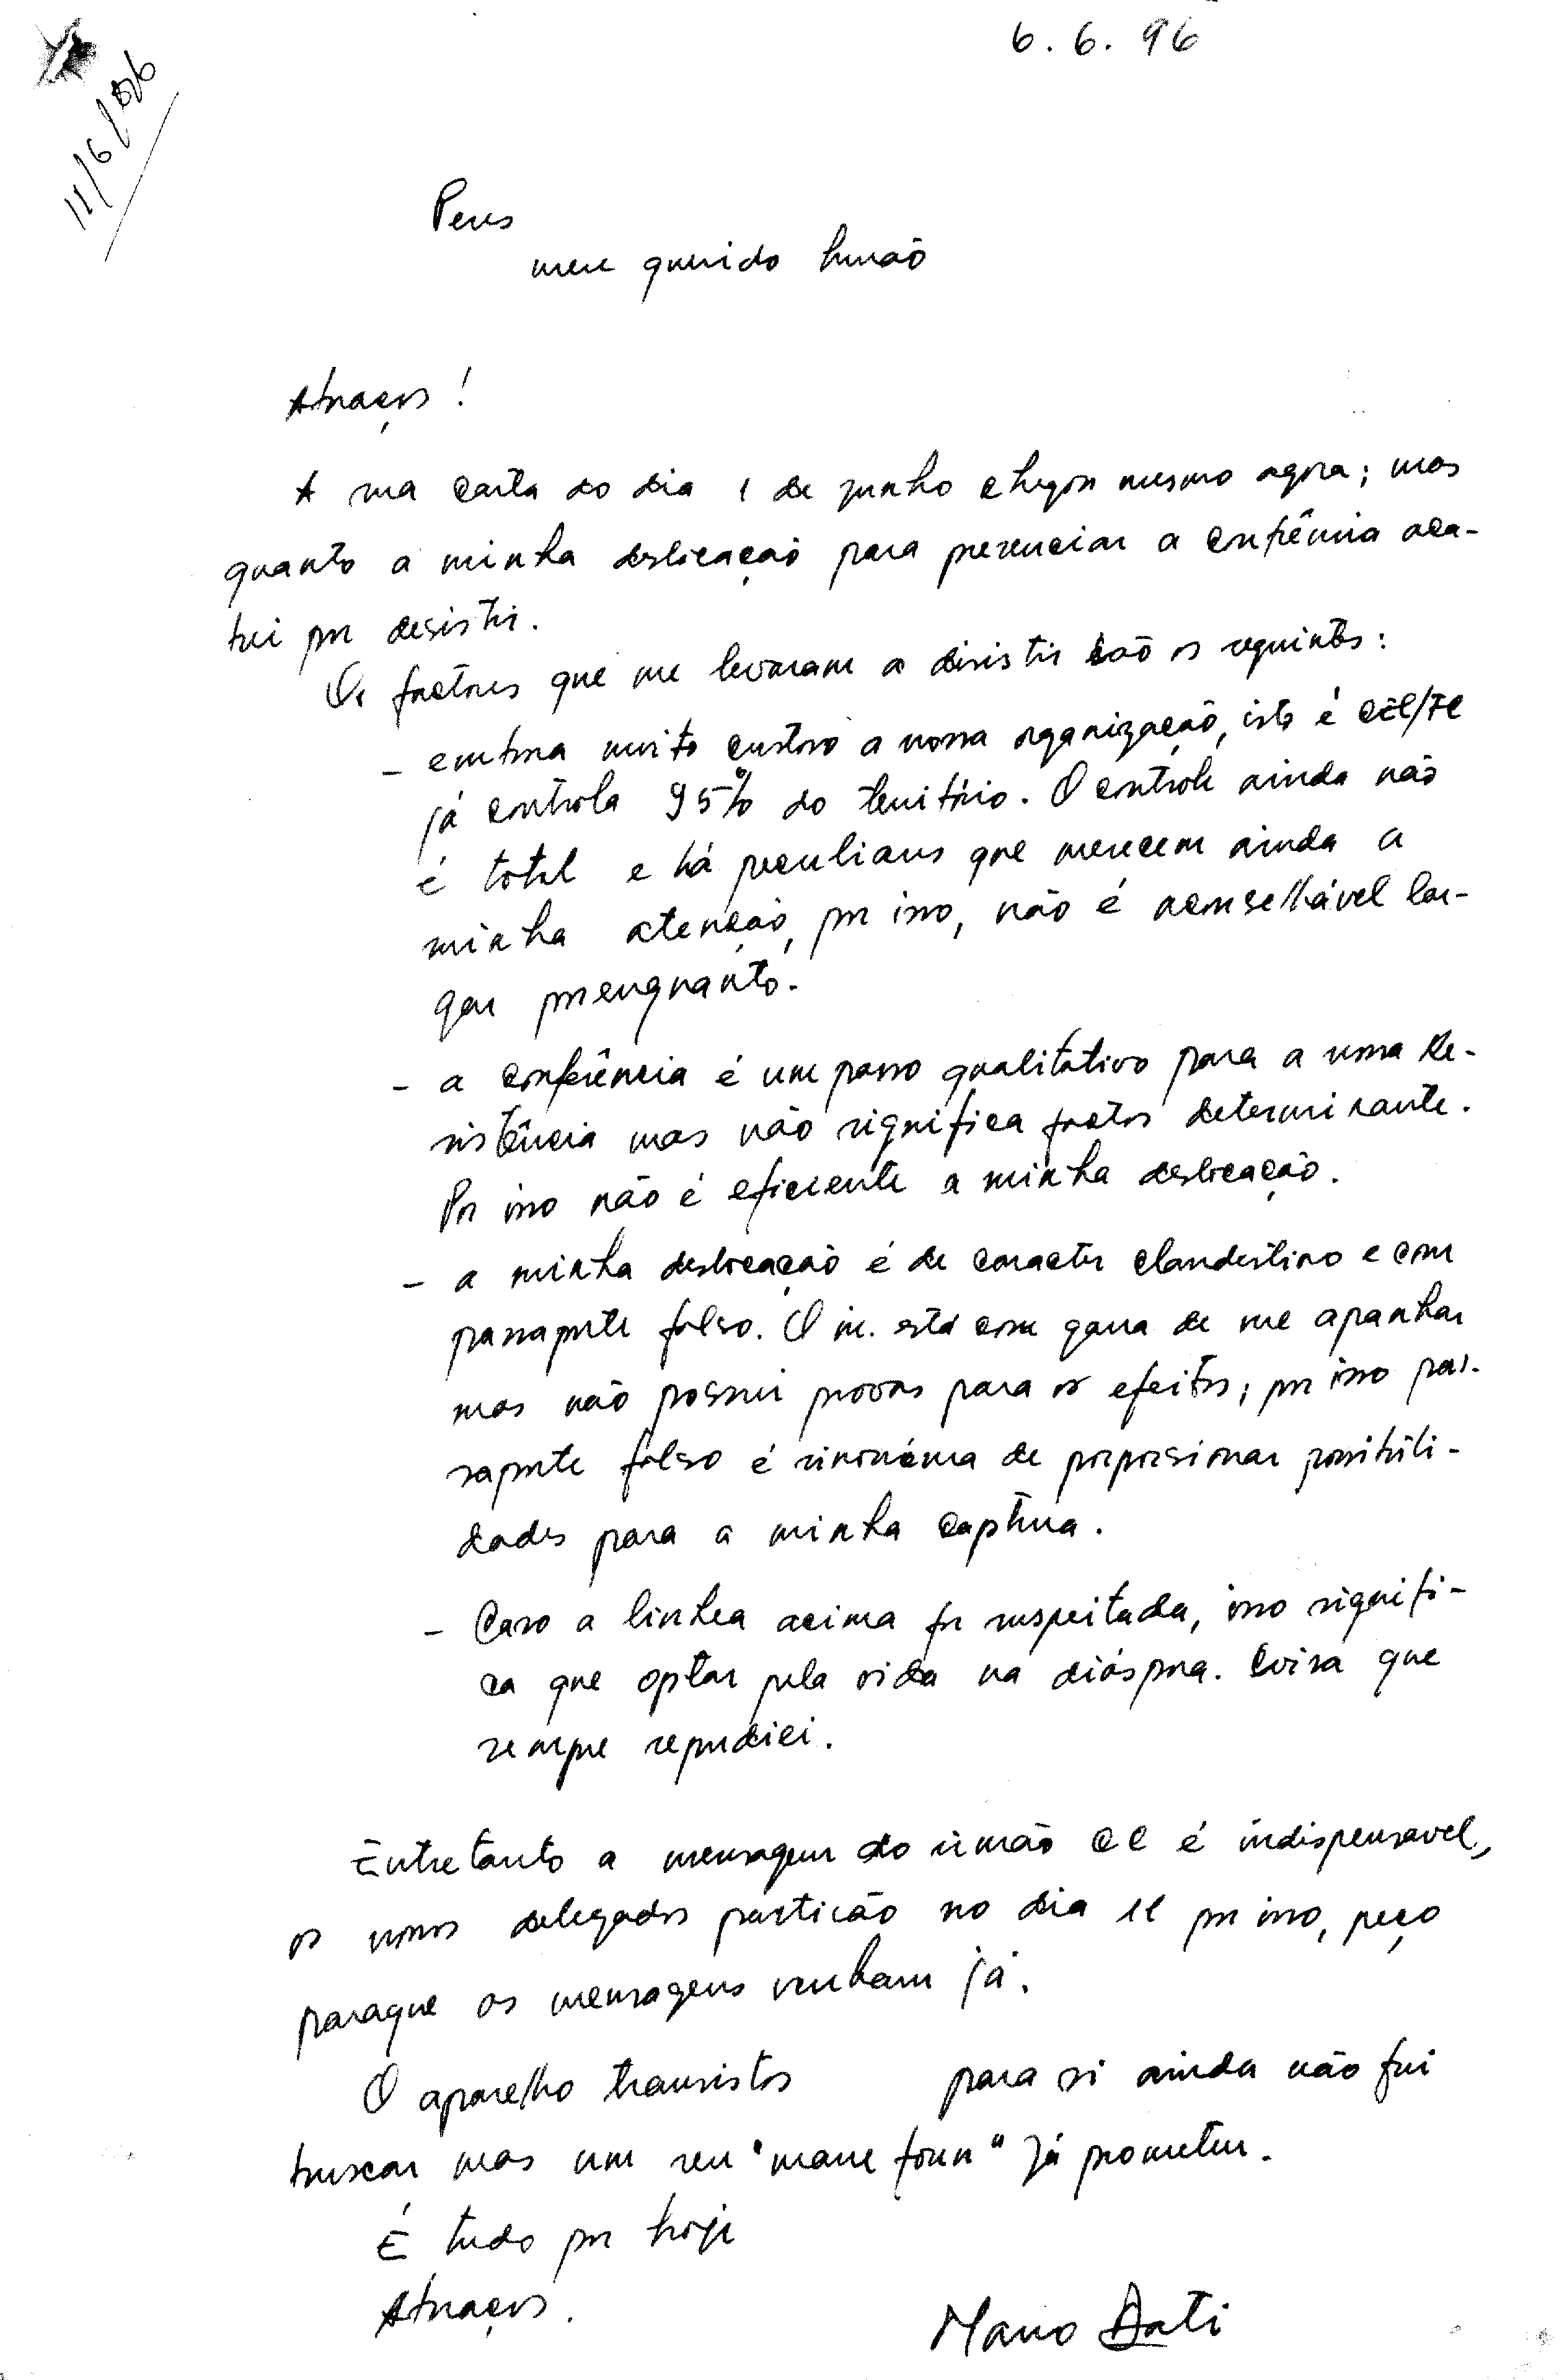 6.6.96
11/6/96
Peres
meu querido Irmão
Abraços!
A sua carta do dia 1 de junho chegou mesmo agora; mas
quanto a minha deslocação para presenciar a confrência aca-
bei por desistir.
Os factores que me levaram a disistir são os seguintes:
- embora muito custoso a nossa organização, isto é CEL/FC
já controla 95% do território. O controle ainda não
é total e há peculiares que merecem ainda a
minha atenção, por isso, não é aconselhável lar-
gar porenquanto.
- a conferência é um passo qualitativo para a nossa Re-
sistência mas não significa factor determinante.
Por isso não é eficiente a minha deslocação.
- a minha deslocação é de caracter clandestino e com
passaporte falso. O in. está com garra de me apanhar
mas não possui provas para os efeitos; por isso pas-
saporte falso é sinonéma de porporsionar possibili-
dades para a minha captura.
- Caso a linhea acima for suspeitada, isso signifi-
ca que optar pela vida na diáspora. Coisa que
sempre repudiei.
Entretanto a mensagem do irmão CC é indispensavel,
os nossos delegados partirão no dia 11 por isso, peço
paraque as mensagens venham já.
O aparelho transistor para si ainda não fui
buscar mas um seu "mane foun" já prometeu.
É tudo por hoje
Abraços.
Mano Dati